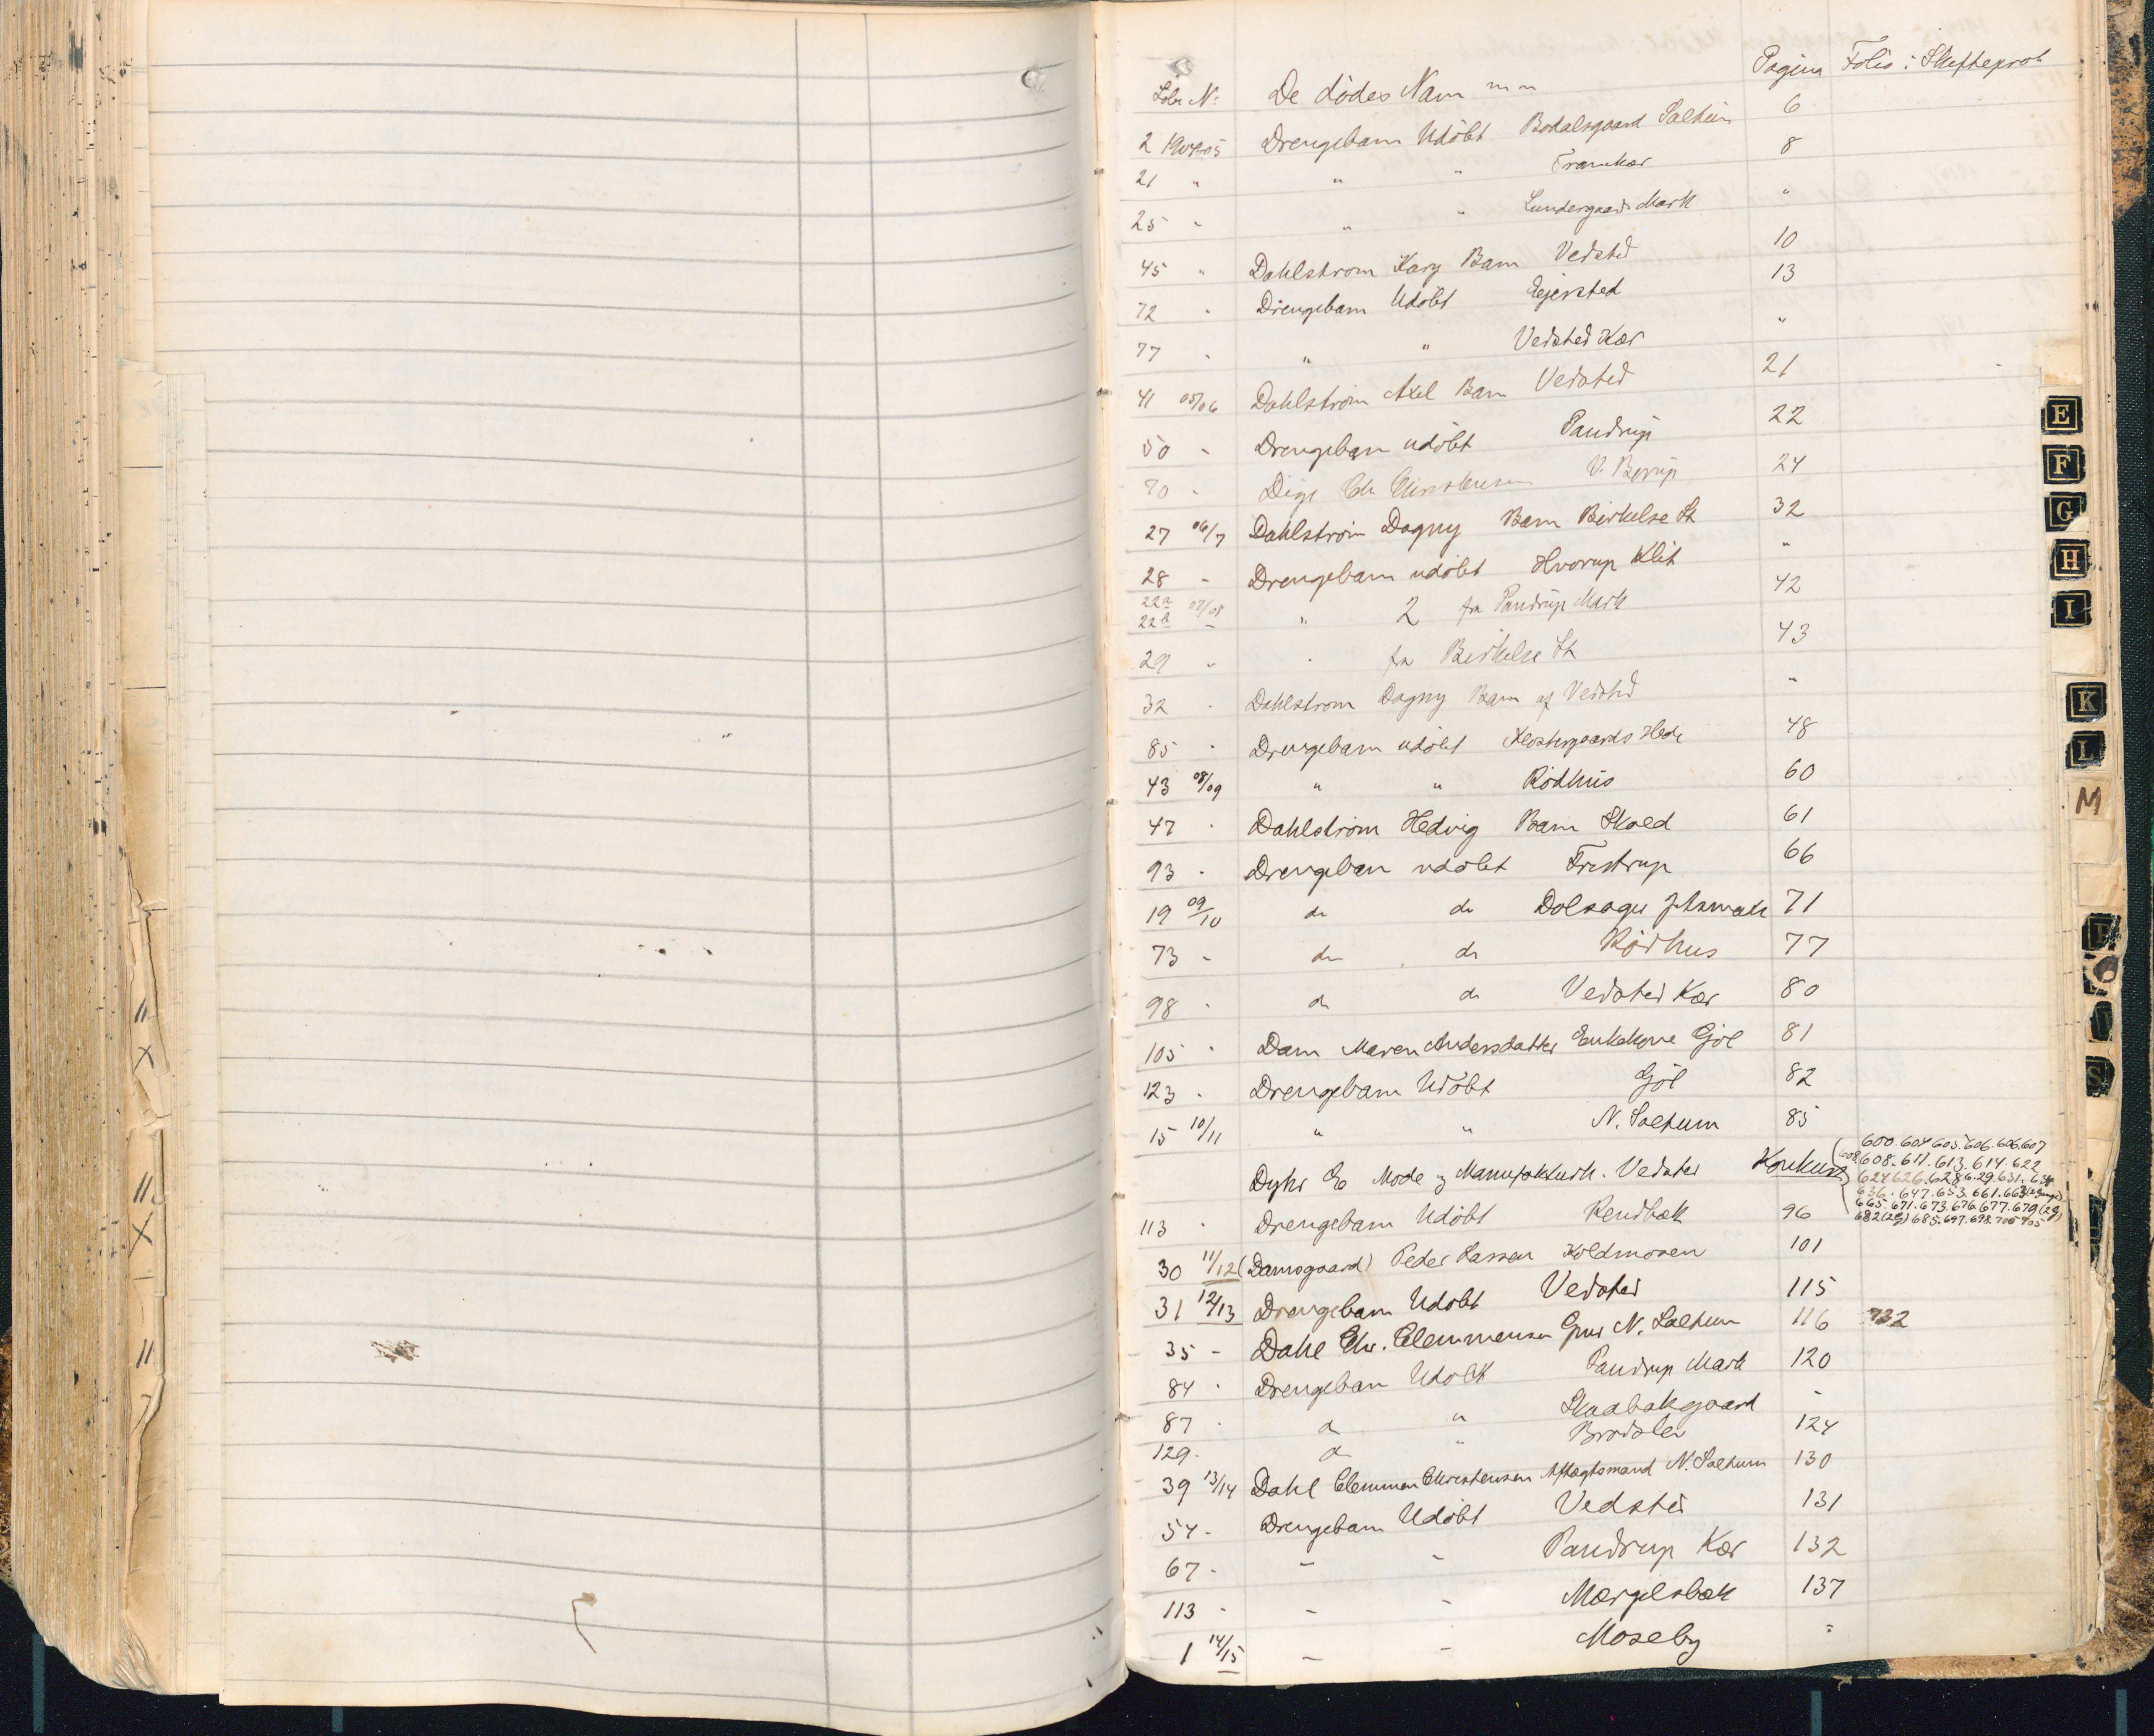 Løbe N:	De dødes Navn m m	Pagina	Folio i Skifteprot
2 1904-05 Drengebarn Udøbt Bodalsgaard Saltum 6
21 " " " Tranekær 8
25 " " " Lundergaards Mark "
45 " Dahlstrøm Kary Barn Vedsted 10
72 " Drengebarn Udøbt Ejersted 13
77 " " " Vedsted Kær "
41 05/06 Dahlstrøm Axel Barn Vedsted 21
50 - Drengebarn udøbt Pandrup 22
70 - Dige Chr Christensen V. Bjerup 24
27 06/7 Dahlstrøm Dagny Barn Birkelse St 32
28 - Drengebarn udøbt Hvorup Klit "
22a 07/08
22b - " 2 fra Pandrup Mark 42
29 " " fra Birkelse St 43
32 " Dahlstrøm Dagny Barn af Vedsted "
85 " Drengebarn udøbt Klostergaards Hede 48
43 08/09 " " Rødhus 60
47 " Dahlstrøm Hedvig Barn Skoed 61
93 - Drengebarn udøbt Fristrup 66
19 09/10 do do Dolsager 71
73 - do do Rødhus 77
98 - do do Vedsted Kær 80
105 " Dam Maren Andersdatter Enkekone Gjøl 81
123 - Drengebarn Udøbt Gjøl 82
15 10/11 " " N. Saltum 85
Dyhr E Mode og Manufakturh. Vedsted Konkurs
600.604 605.606.606.607
608.608.611.613.614.622
624 626.628 6.29.631.634
636.647.653.661.663 (2 gange)
665.671.673.676.677.679 (2g)
682 (2g) 685.697.698.705 705
113 " Drengebarn Udøbt Rendbæk 96
30 11/12 (Damsgaard) Peder Larsen Koldmosen 101
31 12/13 Drengebarn Udøbt Vedsted 115
35 - Dahl Chr. Clemmensen Gmd N. Saltum 116 732
84 " Drengebarn Udøbt Pandrup Mark 120
87 " " " Skaabakgaard -
129 - " " Brodslev 124
39 13/14 Dahl Clemmen Christensen Aftægtsmand N. Saltum 130
54 - Drengebarn Udøbt Vedsted 131
67 - - - Pandrup Kær 132
113 - - - Mærgelsbæk 137
1 14/15 - - Moseby "
E
F
G
H
I
K
L
M
P
S